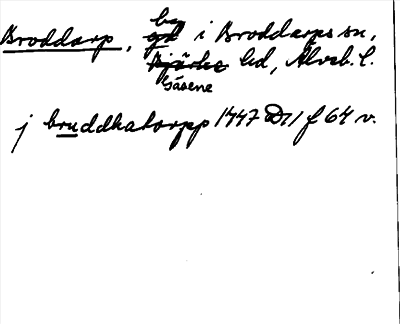 Broddarp, by i Broddarps sn,
Gäsene hd, Älvsb. l.
j bruddhatorpp 1447 D11 f 64 v.